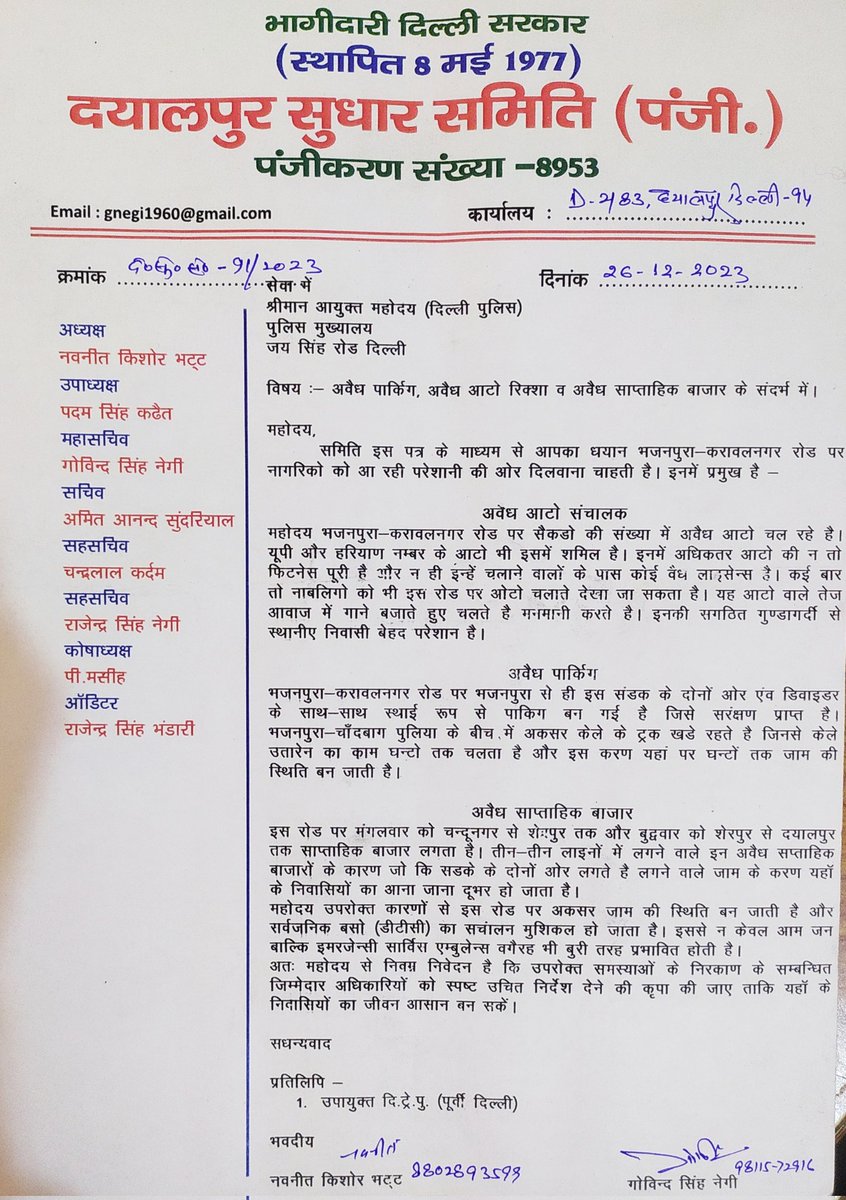 भागीदारी दिल्ली सरकार
(स्थापित 8 मई 1977)
दयालपुर सुधार समिति (पंजी.)
पंजीकरण संख्या –8953
Email : gnegi1960@gmail.com
कार्यालय : D-2/83, दयालपुर दिल्ली-94
क्रमांक द०सु०स०-91/2023
दिनांक 26-12-2023
अध्यक्ष
नवनीत किशोर भट्ट
उपाध्यक्ष
पदम सिंह कढैत
महासचिव
गोविन्द सिंह नेगी
सचिव
अमित आनन्द सुंदरियाल
सहसचिव
चन्द्रलाल कर्दम
सहसचिव
राजेन्द्र सिंह नेगी
कोषाध्यक्ष
पी.मसीह
ऑडिटर
राजेन्द्र सिंह भंडारी
सेवा में
श्रीमान आयुक्त महोदय (दिल्ली पुलिस)
पुलिस मुख्यालय
जय सिंह रोड दिल्ली
विषय :– अवैध पार्किग, अवैध आटो रिक्शा व अवैध साप्ताहिक बाजार के संदर्भ में।
महोदय,
समिति इस पत्र के माध्यम से आपका धयान भजनपुरा–करावलनगर रोड पर
नागरिको को आ रही परेशानी की ओर दिलवाना चाहती है। इनमें प्रमुख है –
अवैध आटो संचालक
महोदय भजनपुरा–करावलनगर रोड पर सैकडो की संख्या में अवैध आटो चल रहे है।
यूपी और हरियाण नम्बर के आटो भी इसमें शमिल है। इनमें अधिकतर आटो की न तो
फिटनेस पूरी है और न ही इन्हें चलाने वालों के पास कोई वैध लाइसेन्स है। कई बार
तो नाबलिगो को भी इस रोड पर ओटो चलाते देखा जा सकता है। यह आटो वाले तेज
आवाज में गाने बजाते हुए चलते है मनमानी करते है। इनकी सगठित गुण्डागर्दी से
स्थानीए निवासी बेहद परेशान है।
अवैध पार्किग
भजनपुरा–करावलनगर रोड पर भजनपुरा से ही इस संडक के दोनों ओर एंव डिवाइडर
के साथ–साथ स्थाई रूप से पाकिग बन गई है जिसे सरंक्षण प्राप्त है।
भजनपुरा–चाँदबाग पुलिया के बीच में अकसर केले के ट्रक खडे रहते है जिनसे केले
उतारेन का काम घन्टो तक चलता है और इस करण यहां पर घन्टों तक जाम की
स्थिति बन जाती है।
अवैध साप्ताहिक बाजार
इस रोड पर मंगलवार को चन्दूनगर से शेरपुर तक और बुद्ववार को शेरपुर से दयालपुर
तक साप्ताहिक बाजार लगता है। तीन–तीन लाइनों में लगने वाले इन अवैध सप्ताहिक
बाजारों के कारण जो कि सडके के दोनों ओर लगते है लगने वाले जाम के करण यहाँ
के निवासियों का आना जाना दूभर हो जाता है।
महोदय उपरोक्त कारणों से इस रोड पर अकसर जाम की स्थिति बन जाती है और
सार्वजनिक बसो (डीटीसी) का सचांलन मुशिकल हो जाता है। इससे न केवल आम जन
बाल्कि इमरजेन्सी सार्विस एम्बुलेन्स वगैरह भी बुरी तरह प्रभावित होती है।
अतः महोदय से निवम्र निवेदन है कि उपरोक्त समस्याओं के निरकाण के सम्बन्धित
जिम्मेदार अधिकारियों को स्पष्ट उचित निर्देश देने की कृपा की जाए ताकि यहाँ के
निवासियों का जीवन आसान बन सकें।
सधन्यवाद
प्रतिलिपि –
1. उपायुक्त दि.ट्रे.पु. (पूर्वी दिल्ली)
भवदीय
नवनीत
नवनीत किशोर भट्ट
98115-72916
गोविन्द सिंह नेगी